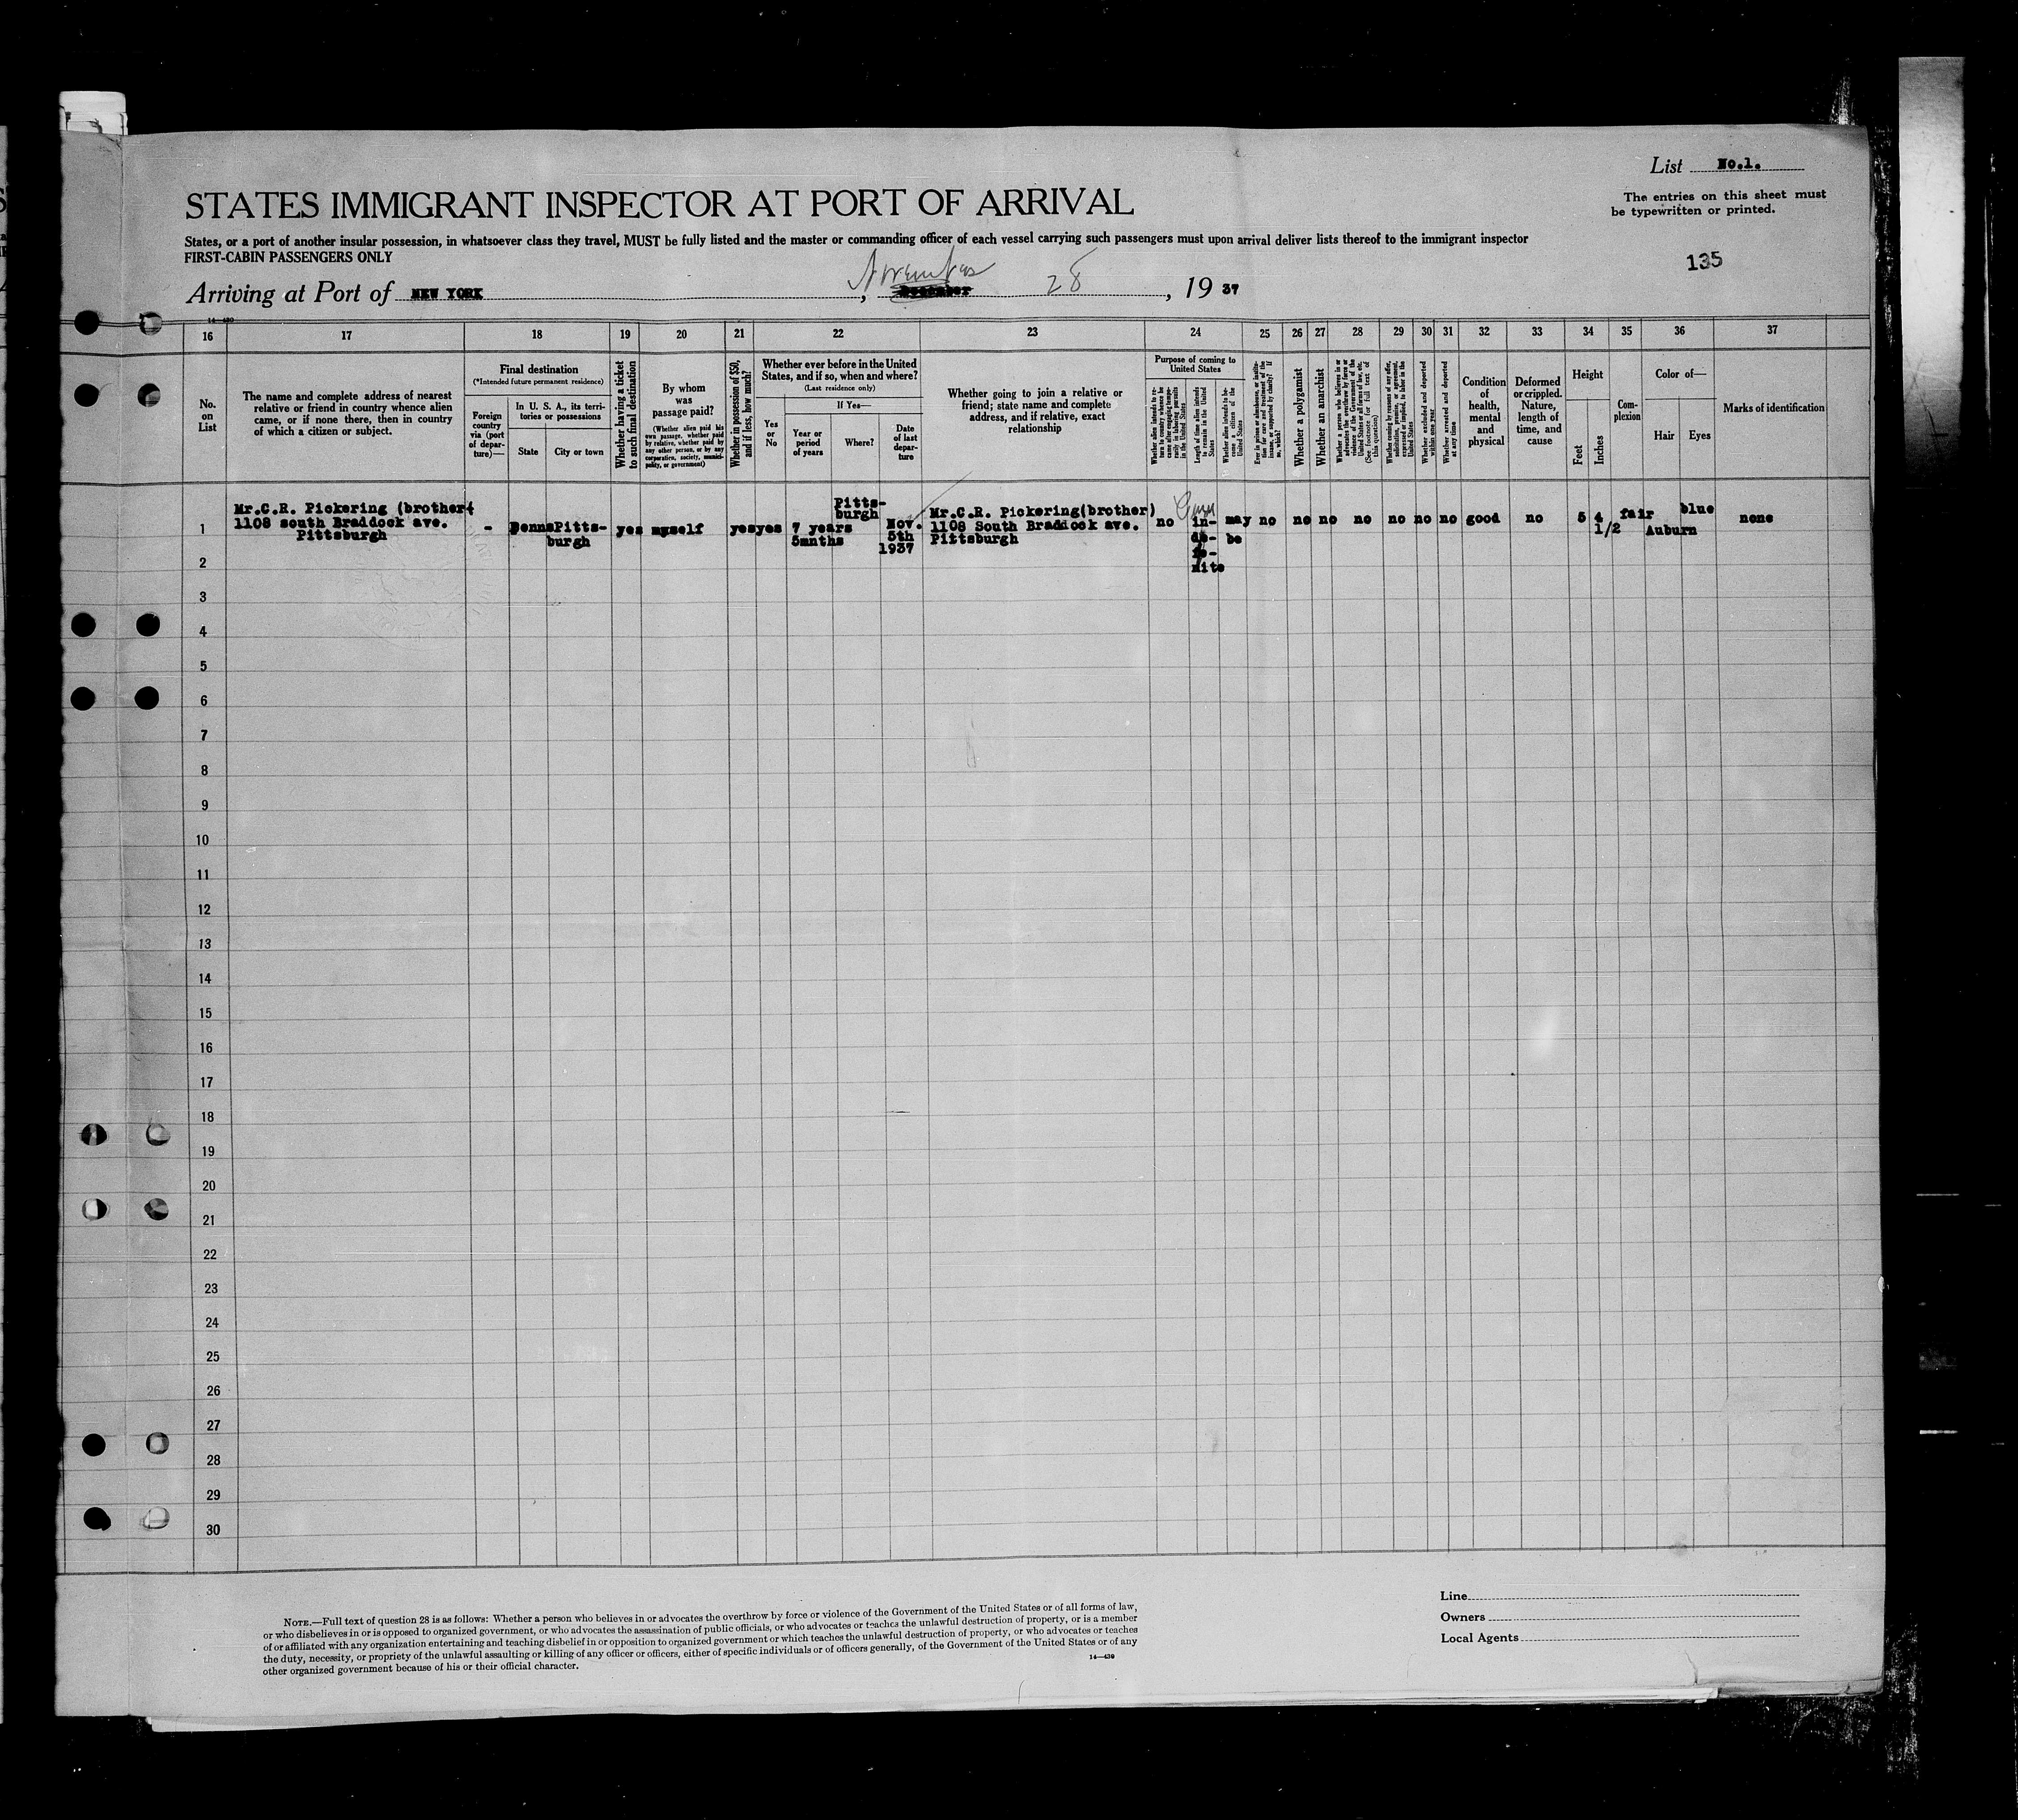 List No.1.
STATES IMMIGRANT INSPECTOR AT PORT OF ARRIVAL
The entries on this sheet must
be typewritten or printed.
States, or a port of another insular possession, in whatsoever class they travel, MUST be fully listed and the master or commanding officer of each vessel carrying such passengers must upon arrival deliver lists thereof to the immigrant inspector
FIRST-CABIN PASSENGERS ONLY
135
Arriving at Port of NEW YORK, November 28, 19 37
14—430
16 17 18 19 20 21 22 23 24 25 26 27 28 29 30 31 32 33 34 35 36 37
No.
on
List
The name and complete address of nearest
relative or friend in country whence alien
came, or if none there, then in country
of which a citizen or subject.
Final destination
(*Intended future permanent residence)
Foreign
country
via (port
of depar-
ture)—
In U. S. A., its terri-
tories or possessions
State
City or town
Whether having a ticket
to such final destination
By whom
was
passage paid?
(Whether alien paid his
own passage, whether paid
by relative, whether paid by
any other person, or by any
corporation, society, munici-
pality, or government)
Whether in possession of $50,
and if less, how much?
Whether ever before in the United
States, and if so, when and where?
(Last residence only)
Yes
or
No
If Yes—
Year or
period
of years
Where?
Date
of last
depar-
ture
Whether going to join a relative or
friend; state name and complete
address, and if relative, exact
relationship
Purpose of coming to
United States
Whether alien intends to re-
turn to country whence he
came after engaging tempo-
rarily in laboring pursuits
in the United States
Length of time alien intends
to remain in the United
States
Whether alien intends to be-
come a citizen of the
United States
Ever in prison or almshouse, or institu-
tion for care and treatment of the
insane, or supported by charity? If
so, which?
Whether a polygamist
Whether an anarchist
Whether a person who believes in or
advocates the overthrow by force or
violence of the Government of the
United States or all forms of law, etc.
(See footnote for full text of
this question)
Whether coming by reason of any offer,
solicitation, promise, or agreement,
expressed or implied, to labor in the
United States
Whether excluded and deported
within one year
Whether arrested and deported
at any time
Condition
of
health,
mental
and
physical
Deformed
or crippled.
Nature,
length of
time, and
cause
Height
Feet
Inches
Com-
plexion
Color of—
Hair
Eyes
Marks of identification
1
Mr.C.R. Pickering (brother(
1108 south Braddock ave.
Pittsburgh
-
Penna
Pitts-
burgh
yes
myself
yes
yes
7 years
5mnths
Pitts-
burgh
Nov.
5th
1937
Mr.C.R. Pickering(brother)
1108 South Braddock ave.
Pittsburgh
no
in-
de-
fi-
nite
may
be
no
no
no
no
no
no
no
good
no
5
4
1/2
fair
Auburn
blue
none
2
3
4
5
6
7
8
9
10
11
12
13
14
15
16
17
18
19
20
21
22
23
24
25
26
27
28
29
30
NOTE.—Full text of question 28 is as follows: Whether a person who believes in or advocates the overthrow by force or violence of the Government of the United States or of all forms of law,
or who disbelieves in or is opposed to organized government, or who advocates the assassination of public officials, or who advocates or teaches the unlawful destruction of property, or is a member
of or affiliated with any organization entertaining and teaching disbelief in or opposition to organized government or which teaches the unlawful destruction of property, or who advocates or teaches
the duty, necessity, or propriety of the unlawful assaulting or killing of any officer or officers, either of specific individuals or of officers generally, of the Government of the United States or of any
other organized government because of his or their official character.
14—430
Line
Owners
Local Agents